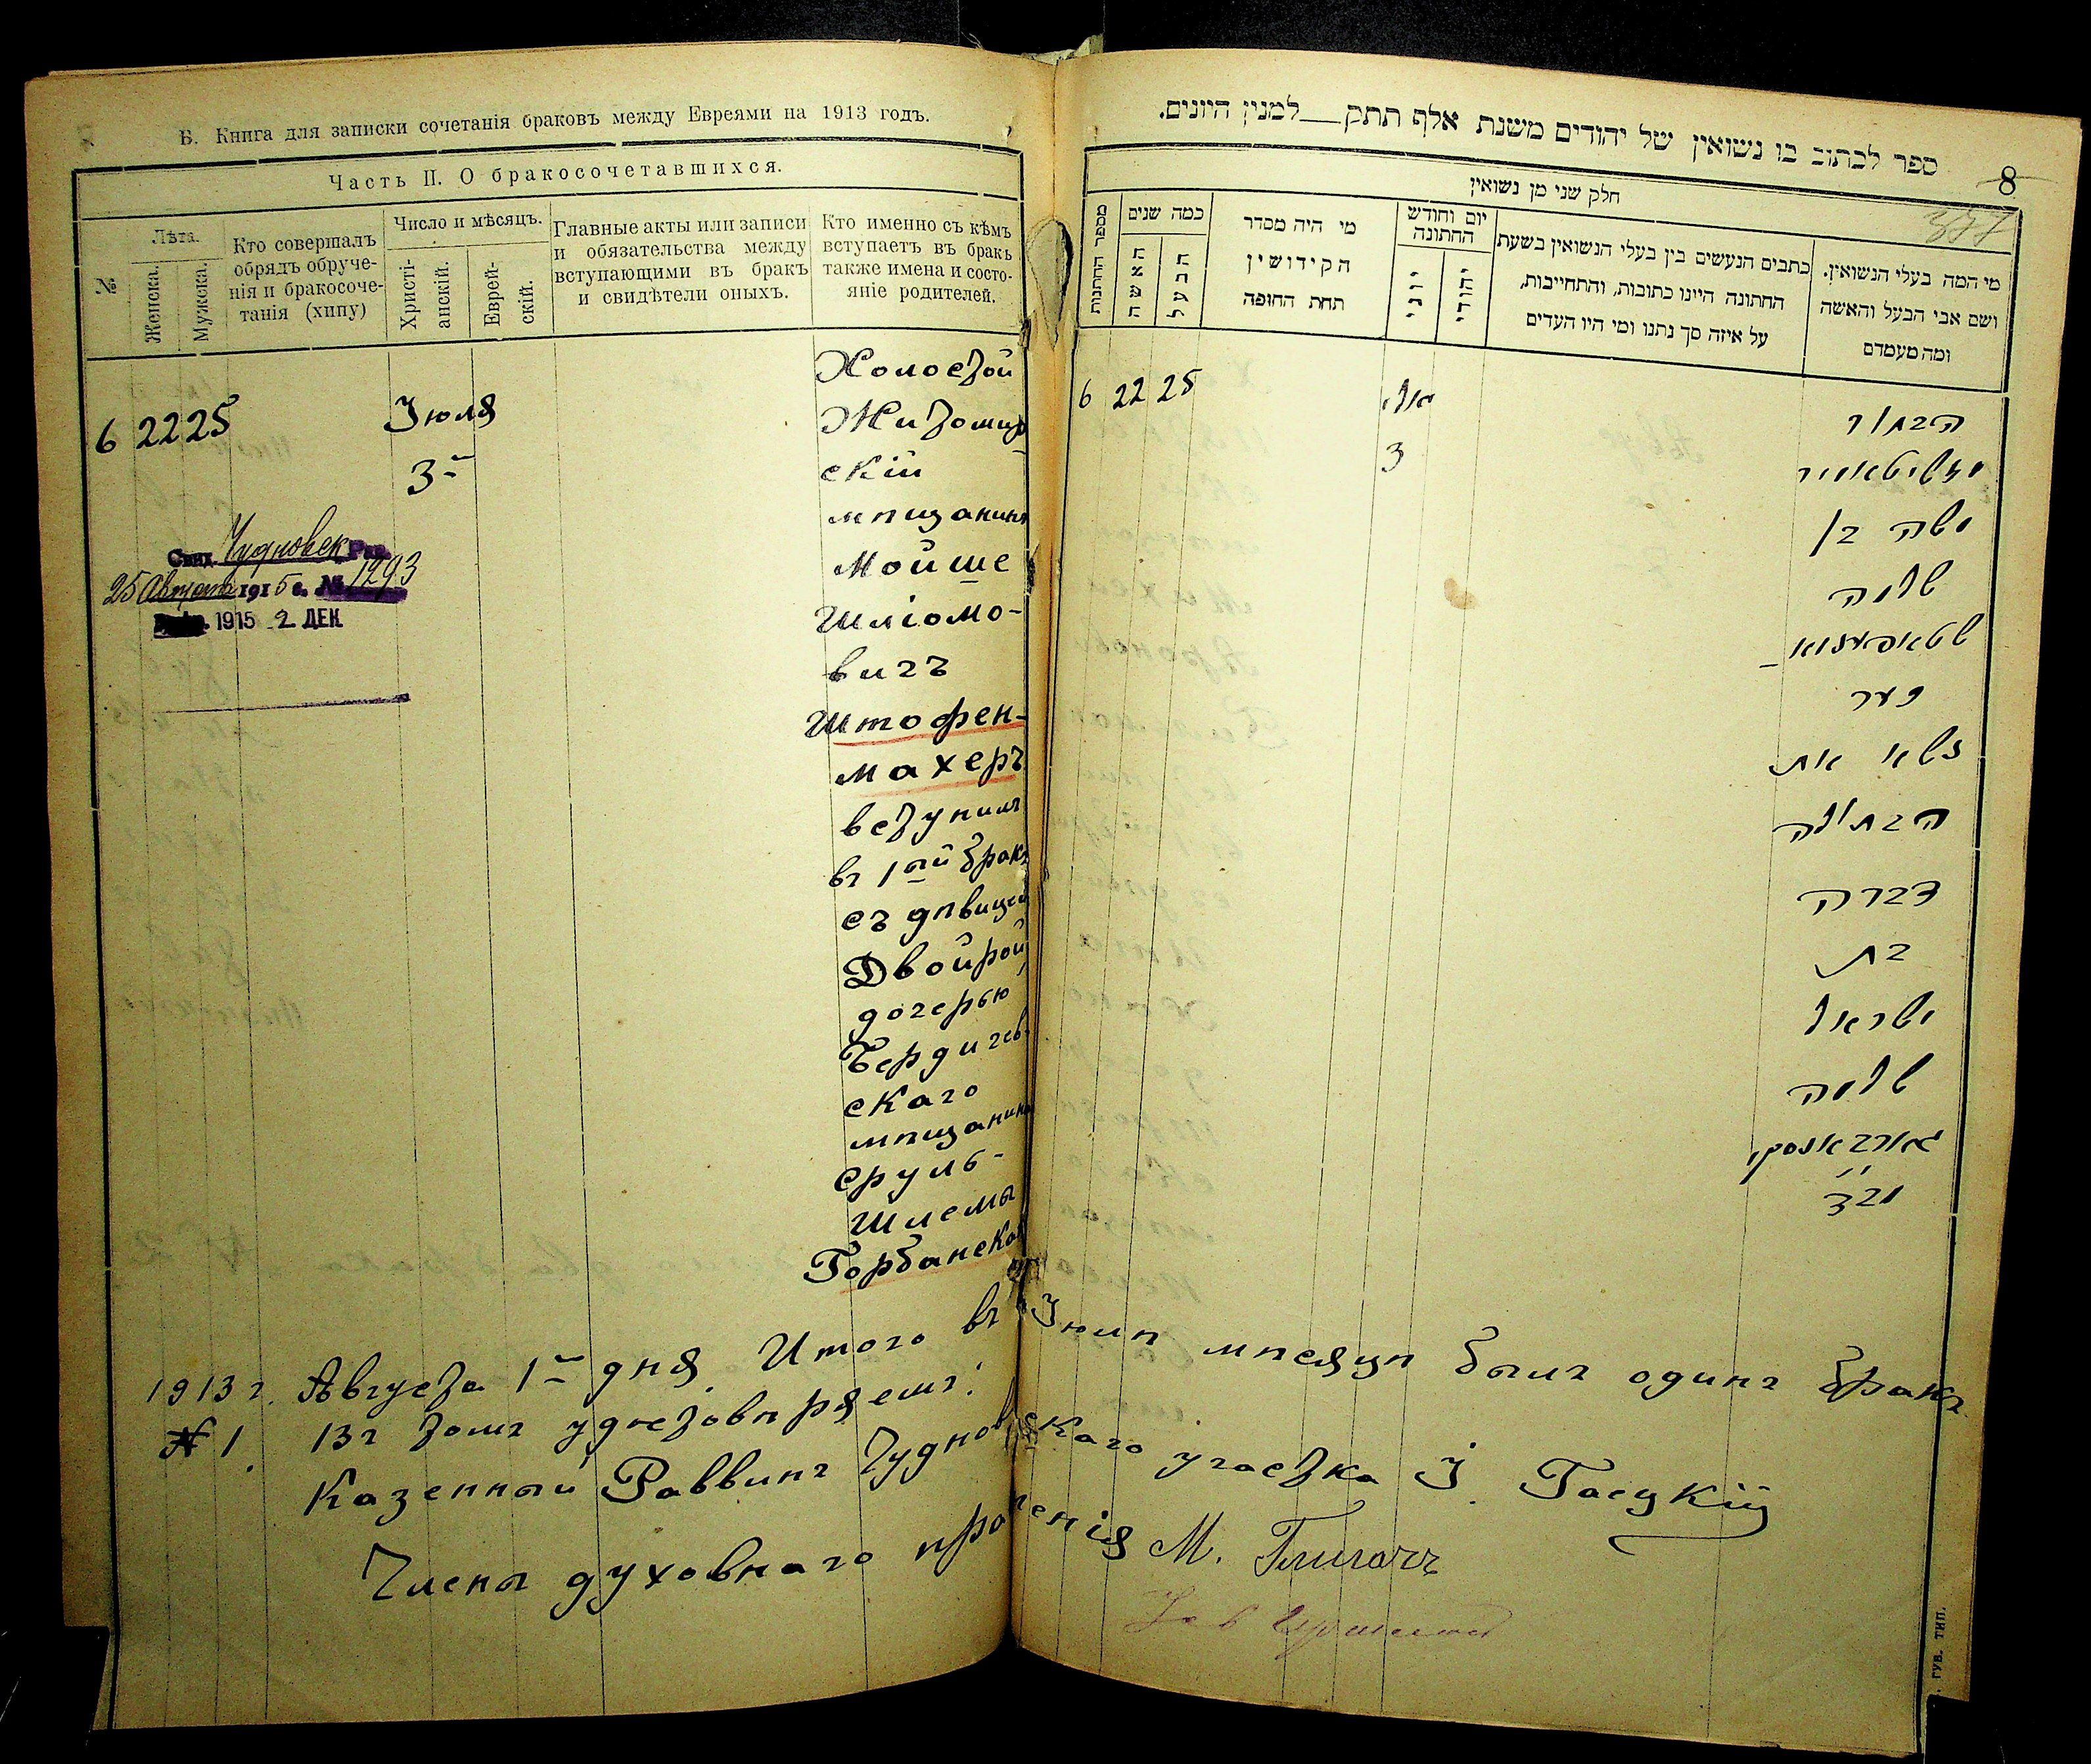 Б. Книга для записки сочетанія браковъ между Евреями на 1913 годъ.
Часть II. О бракосочетавшихся.
№
Лѣта.
Женска.
Мужска.
Кто совершалъ
обрядъ обруче-
нія и бракосоче-
танія (хипу)
Число и мѣсяцъ.
Христі-
анскій.
Еврей-
скій.
Главные акты или записи
и обязательства между
вступающими въ бракъ
и свидѣтели оныхъ.
Кто именно съ кѣмъ
вступаетъ въ бракъ
также имена и состо-
яніе родителей.
6 22 25
Іюля
3
Холостой
Житомир
скій
мѣщанинъ
Мойше
Шліомо-
вичъ
Штофен-
махеръ
вступилъ
въ 1ый бракъ
съ дѣвицей
Двойрой
дочерью
Бердичев-
скаго
мѣщанина
Сруль-
Шлемы
Горбанской
Свид. Чудновск Рав.
25 Августа 1915 г. № 1293
1915 2 ДЕК
ספר לכתוב בו נשואין של יהודים משנת אלף תתק__למנין היונים.
8
377
חלק שני מן נשואין
מספר החתנות
כמה שנים
האשה
הבעל
מי היה מסדר
הקידושין
תחת החופה
יום וחודש
החתונה
יוני
יהודי
כתבים הנעשים בין בעלי הנשואין בשעת
החתונה היינו כתובות, והתחייבות,
על איזה סך נתנו ומי היו העדים
מי המה בעלי הנשואין.
ושם אבי הבעל והאשה
ומה מעמדם
6 22 25
יולי
3
הבחור
משה בן
שלמה
נשא את
הבתולה
דברה
בת
ישראל
שלמה
גארבאנסקי
1913 г. Августа 1 дня Итого въ Іюлѣ мѣсяцѣ былъ одинъ бракъ
№ 1. Въ томъ удостовѣряемъ:
Казенный Раввинъ Чудновскаго участка І.
Члены духовнаго правленія М.
ГУБ. ТИП.